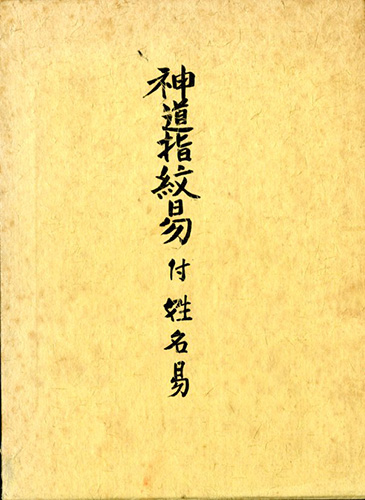 神道指紋易付姓名易